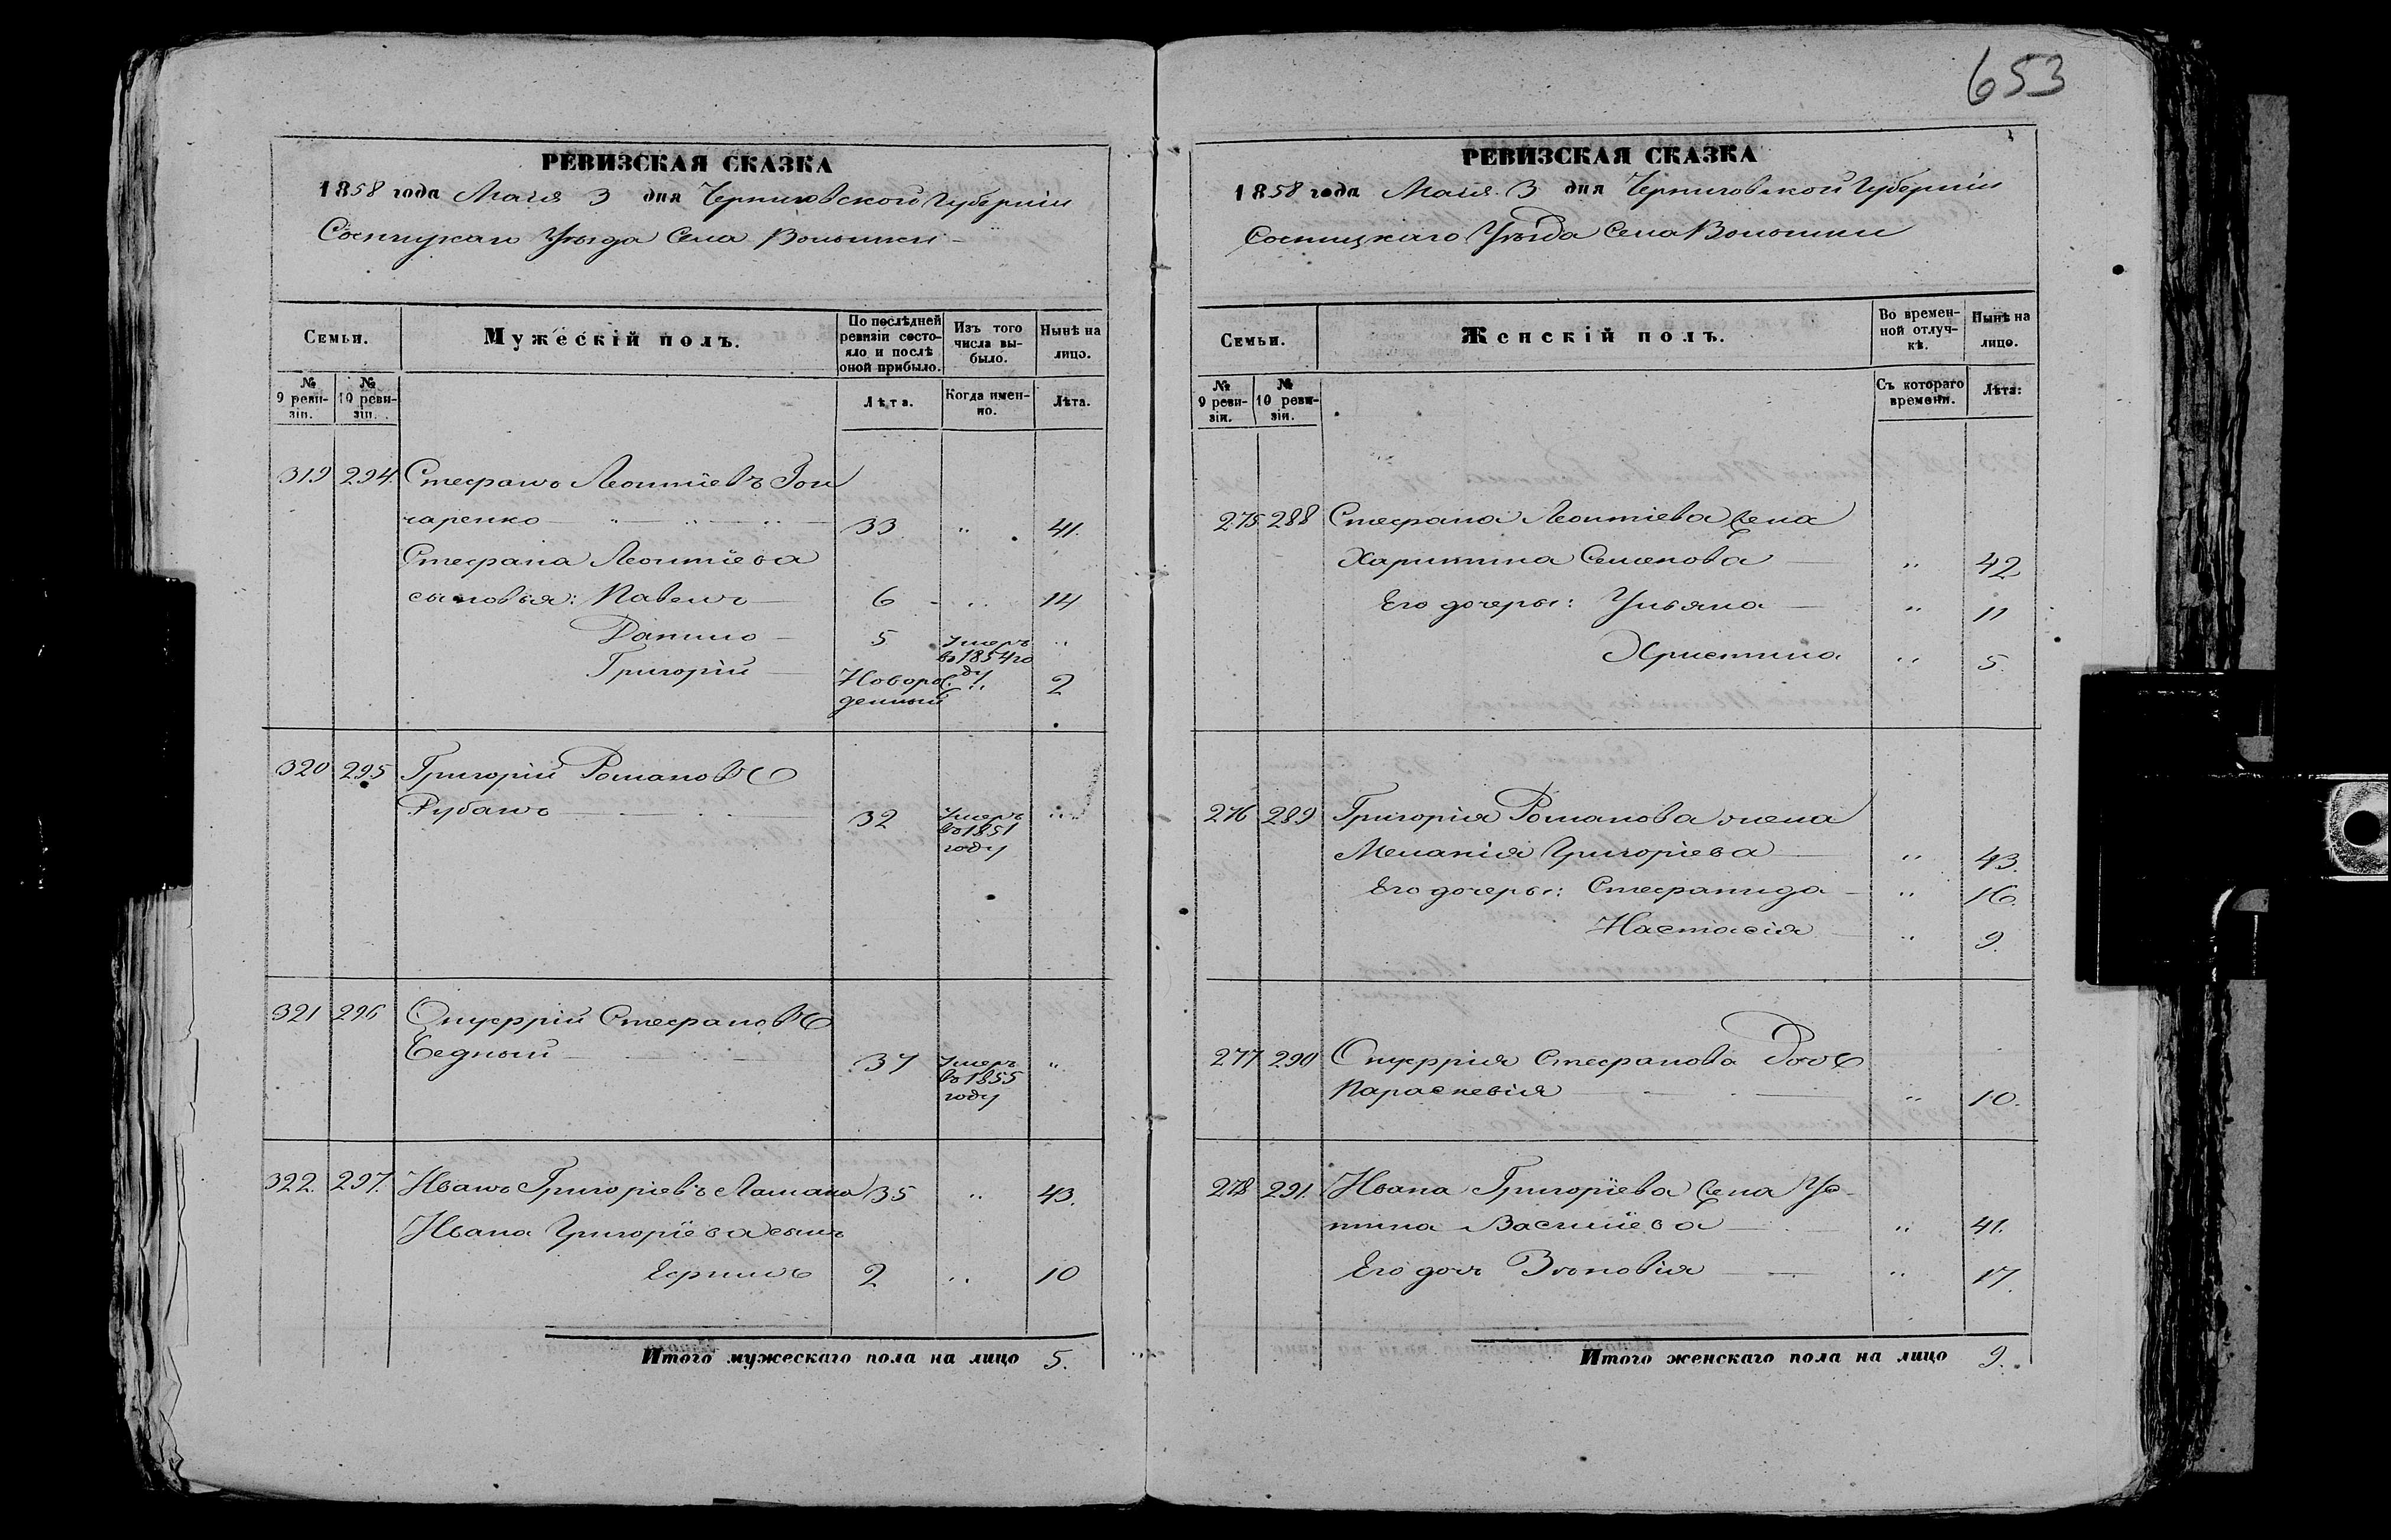 653
РЕВИЗСКАЯ СКАЗКА
1858 года Маія 3 дня Черниговской Губерніи
Сосницкаго Уѣзда Села Волынки
Семьи.
Мужескій полъ.
По послѣдней ревизіи состояло и послѣ оной прибыло.
Изъ того числа выбыло.
Нынѣ на лицо.
№ 9 ревизіи.
№ 10 ревизіи.
Лѣта.
Когда именно.
Лѣта.
319 294. Стефанъ Леонтіевъ Гон
чаренко 33 " 41.
Стефана Леонтіева
сыновья: Павелъ 6 " 14
Данило 5 Умеръ въ 1854 году "
Григорій Новорожденный " 2
320 295 Григорій Романовъ
Рубанъ 32 Умеръ въ 1851 году "
321 296 Онуфрій Стефановъ
Бедный 37 Умеръ въ 1855 году "
322. 297. Иванъ Григоріевъ Ламака 35 " 43.
Ивана Григоріева сынъ
Ефимъ 2 " 10
Итого мужескаго пола на лицо 5.
РЕВИЗСКАЯ СКАЗКА
1858 года Маія 3 дня Черниговской Губерніи
Сосницкаго Уѣзда Села Волынки
Семьи.
Женскій полъ.
Во временной отлучкѣ.
Нынѣ на лицо.
№ 9 ревизіи.
№ 10 ревизіи.
Съ котораго времени.
Лѣта:
275 288 Стефана Леонтіева жена
Харитина Семенова " 42
Его дочеры: Ульяна " 11
Христина " 5.
276 289 Григорія Романова жена
Меланія Григоріева " 43.
Его дочеры: Стефанида " 16.
Настасія " 9.
277 290 Онуфрія Стефанова дочь
Параскевія " 10.
278 291. Ивана Григоріева жена Ус-
тина Василіева " 41.
Его дочь Зѣновія " 17.
Итого женскаго пола на лицо 9.